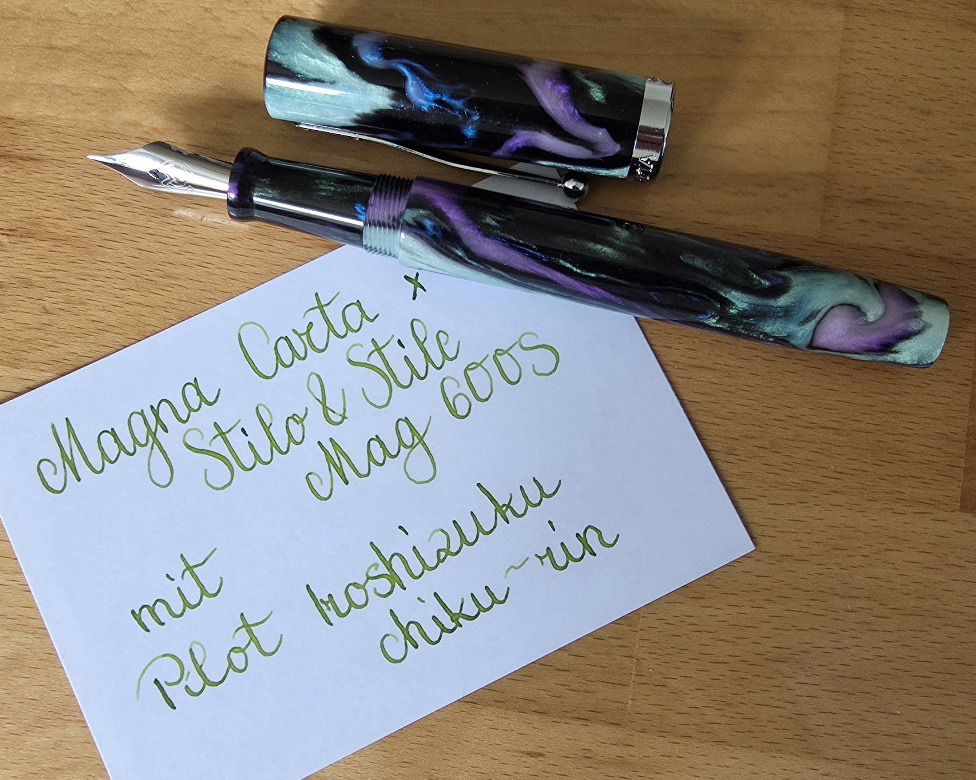 Magna Carta x
Stilo & Stile
Mag 600S
mit
Pilot Iroshizuku
chiku-rin